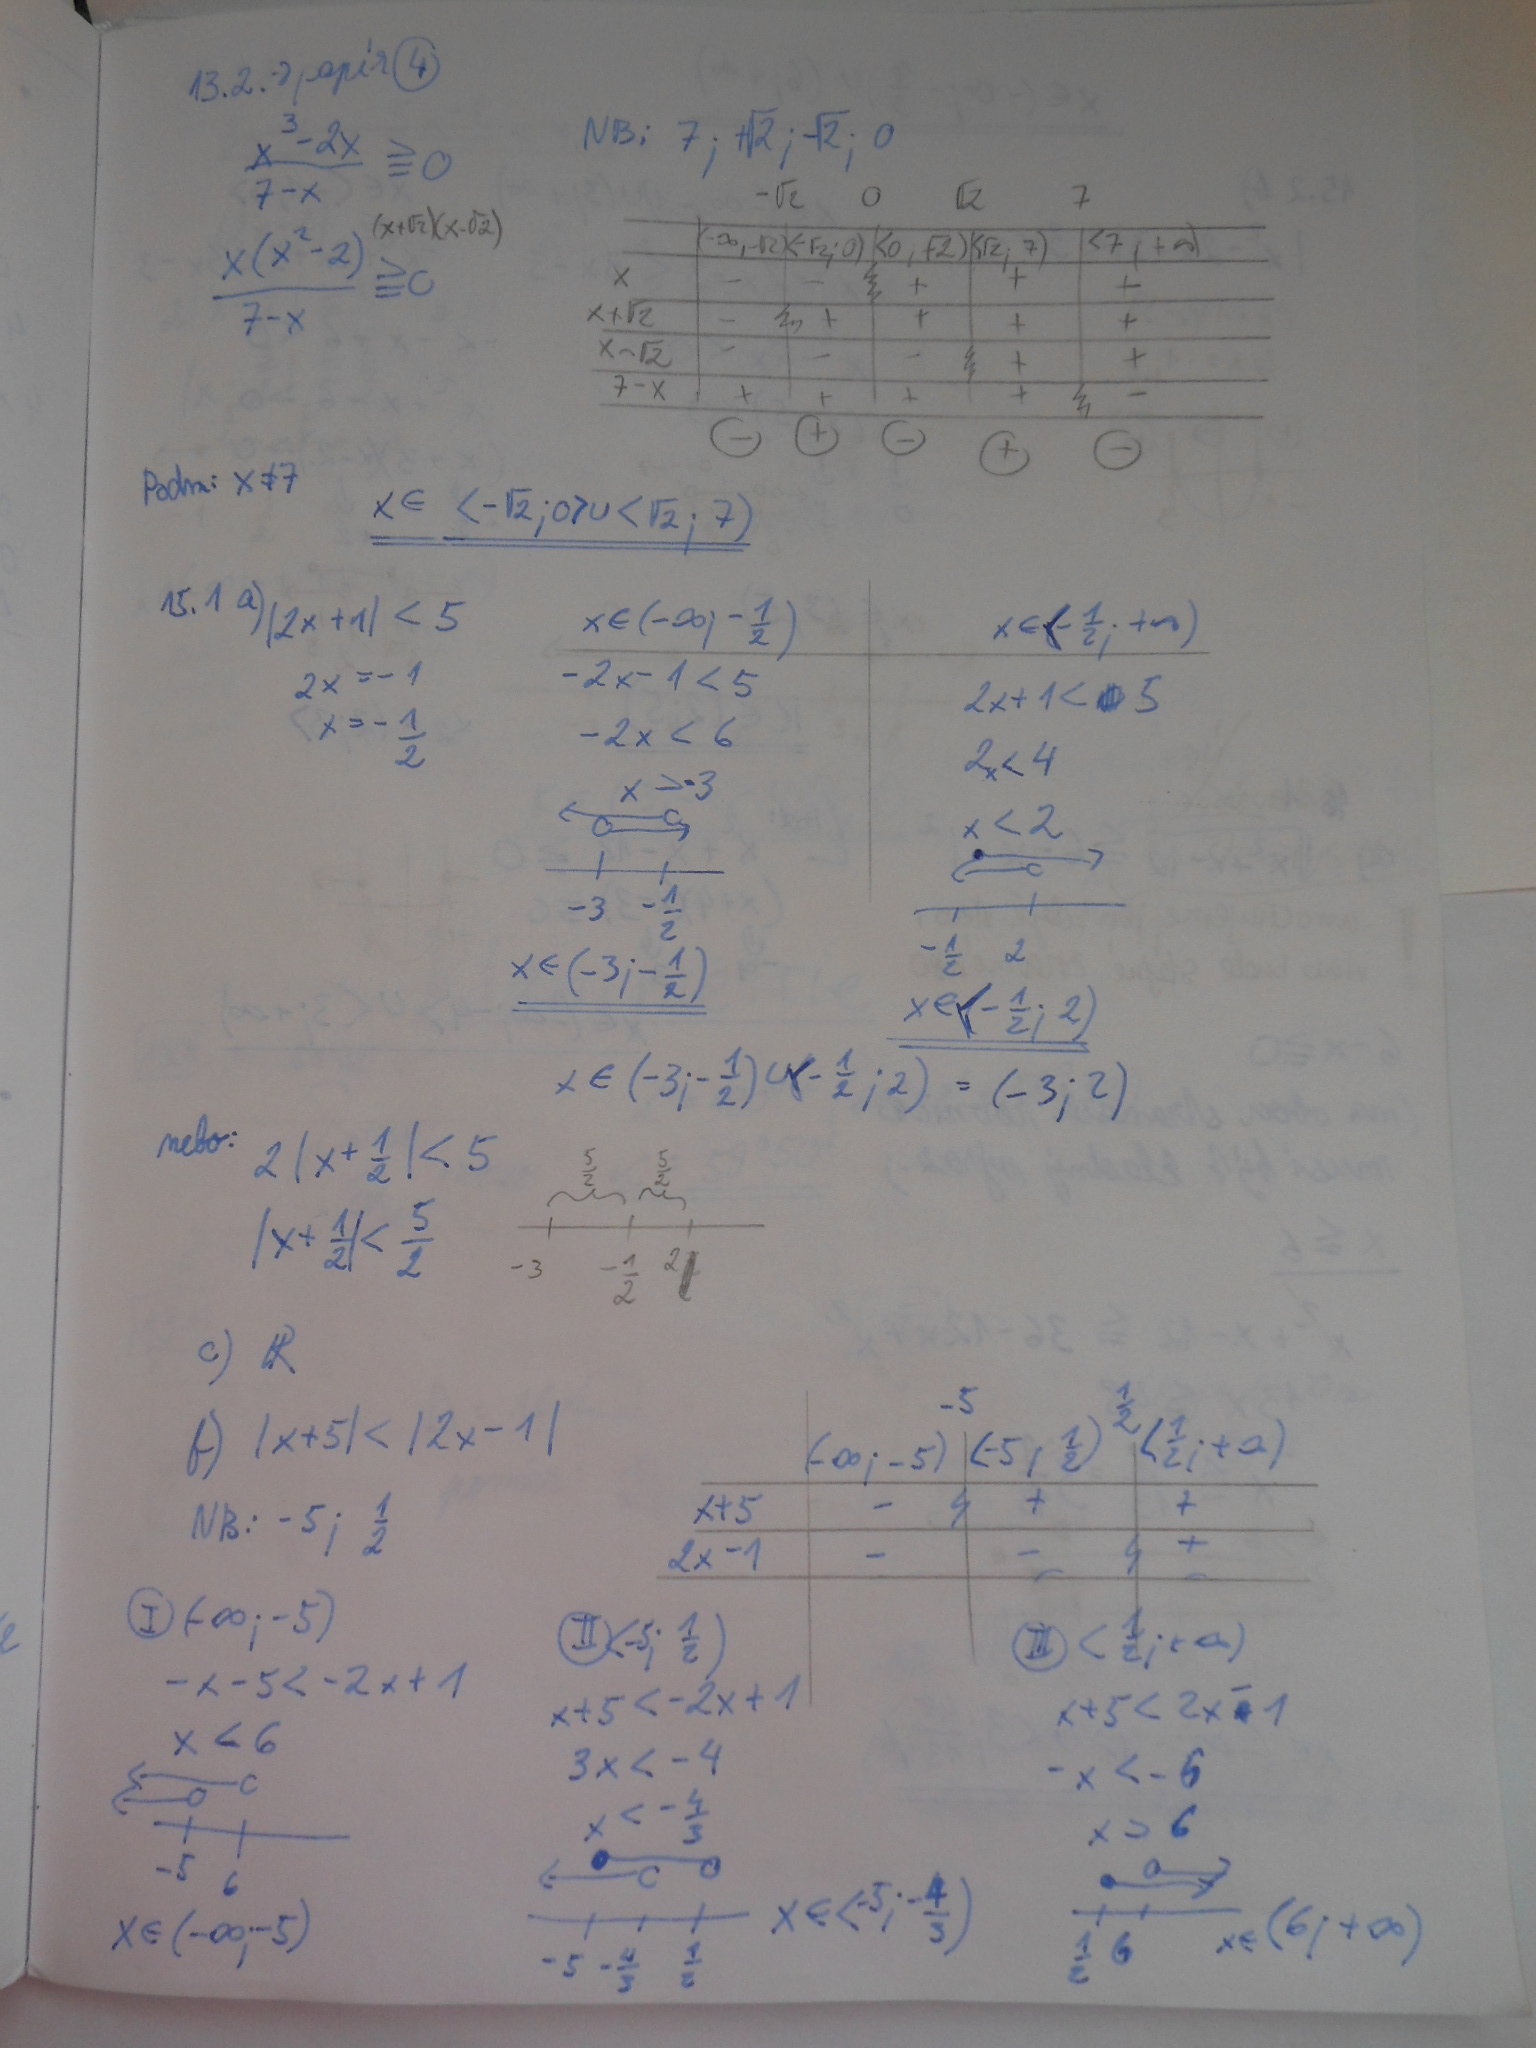 13.2.
④
x³-2x / 7-x ≧ 0
x(x²-2) / 7-x ≧ 0
(x+√2)(x-√2)
NB: 7; +√2; -√2; 0
-√2 0 √2 7
(-∞,-√2) <-√2; 0) <0, √2) <√2; 7) <7; +∞)
x - - + + +
x+√2 - + + + +
x-√2 - - - + +
7-x + + + + -
⊖ ⊕ ⊖ ⊕ ⊖
Podm: x≠7
x∈ <-√2; 0> ∪ <√2; 7)
15.1 a) |2x+1| < 5
2x = -1
x = -1/2
x∈(-∞; -1/2)
-2x-1 < 5
-2x < 6
x > -3
-3 -1/2
x∈(-3; -1/2)
x∈<-1/2; +∞)
2x+1 < 5
2x < 4
x < 2
-1/2 2
x∈<-1/2; 2)
x∈(-3; -1/2) ∪ <-1/2; 2) = (-3; 2)
nebo: 2|x+1/2| < 5
|x+1/2| < 5/2
5/2 5/2
-3 -1/2 2
c) ℝ
f) |x+5| < |2x-1|
NB: -5; 1/2
-5 1/2
(-∞; -5) <-5; 1/2) <1/2; +∞)
x+5 - + +
2x-1 - - +
Ⅰ (-∞; -5)
-x-5 < -2x+1
x < 6
-5 6
x∈(-∞; -5)
Ⅱ <-5; 1/2)
x+5 < -2x+1
3x < -4
x < -4/3
-5 -4/3 1/2
x∈<-5; -4/3)
Ⅲ <1/2; +∞)
x+5 < 2x-1
-x < -6
x > 6
1/2 6
x∈(6; +∞)